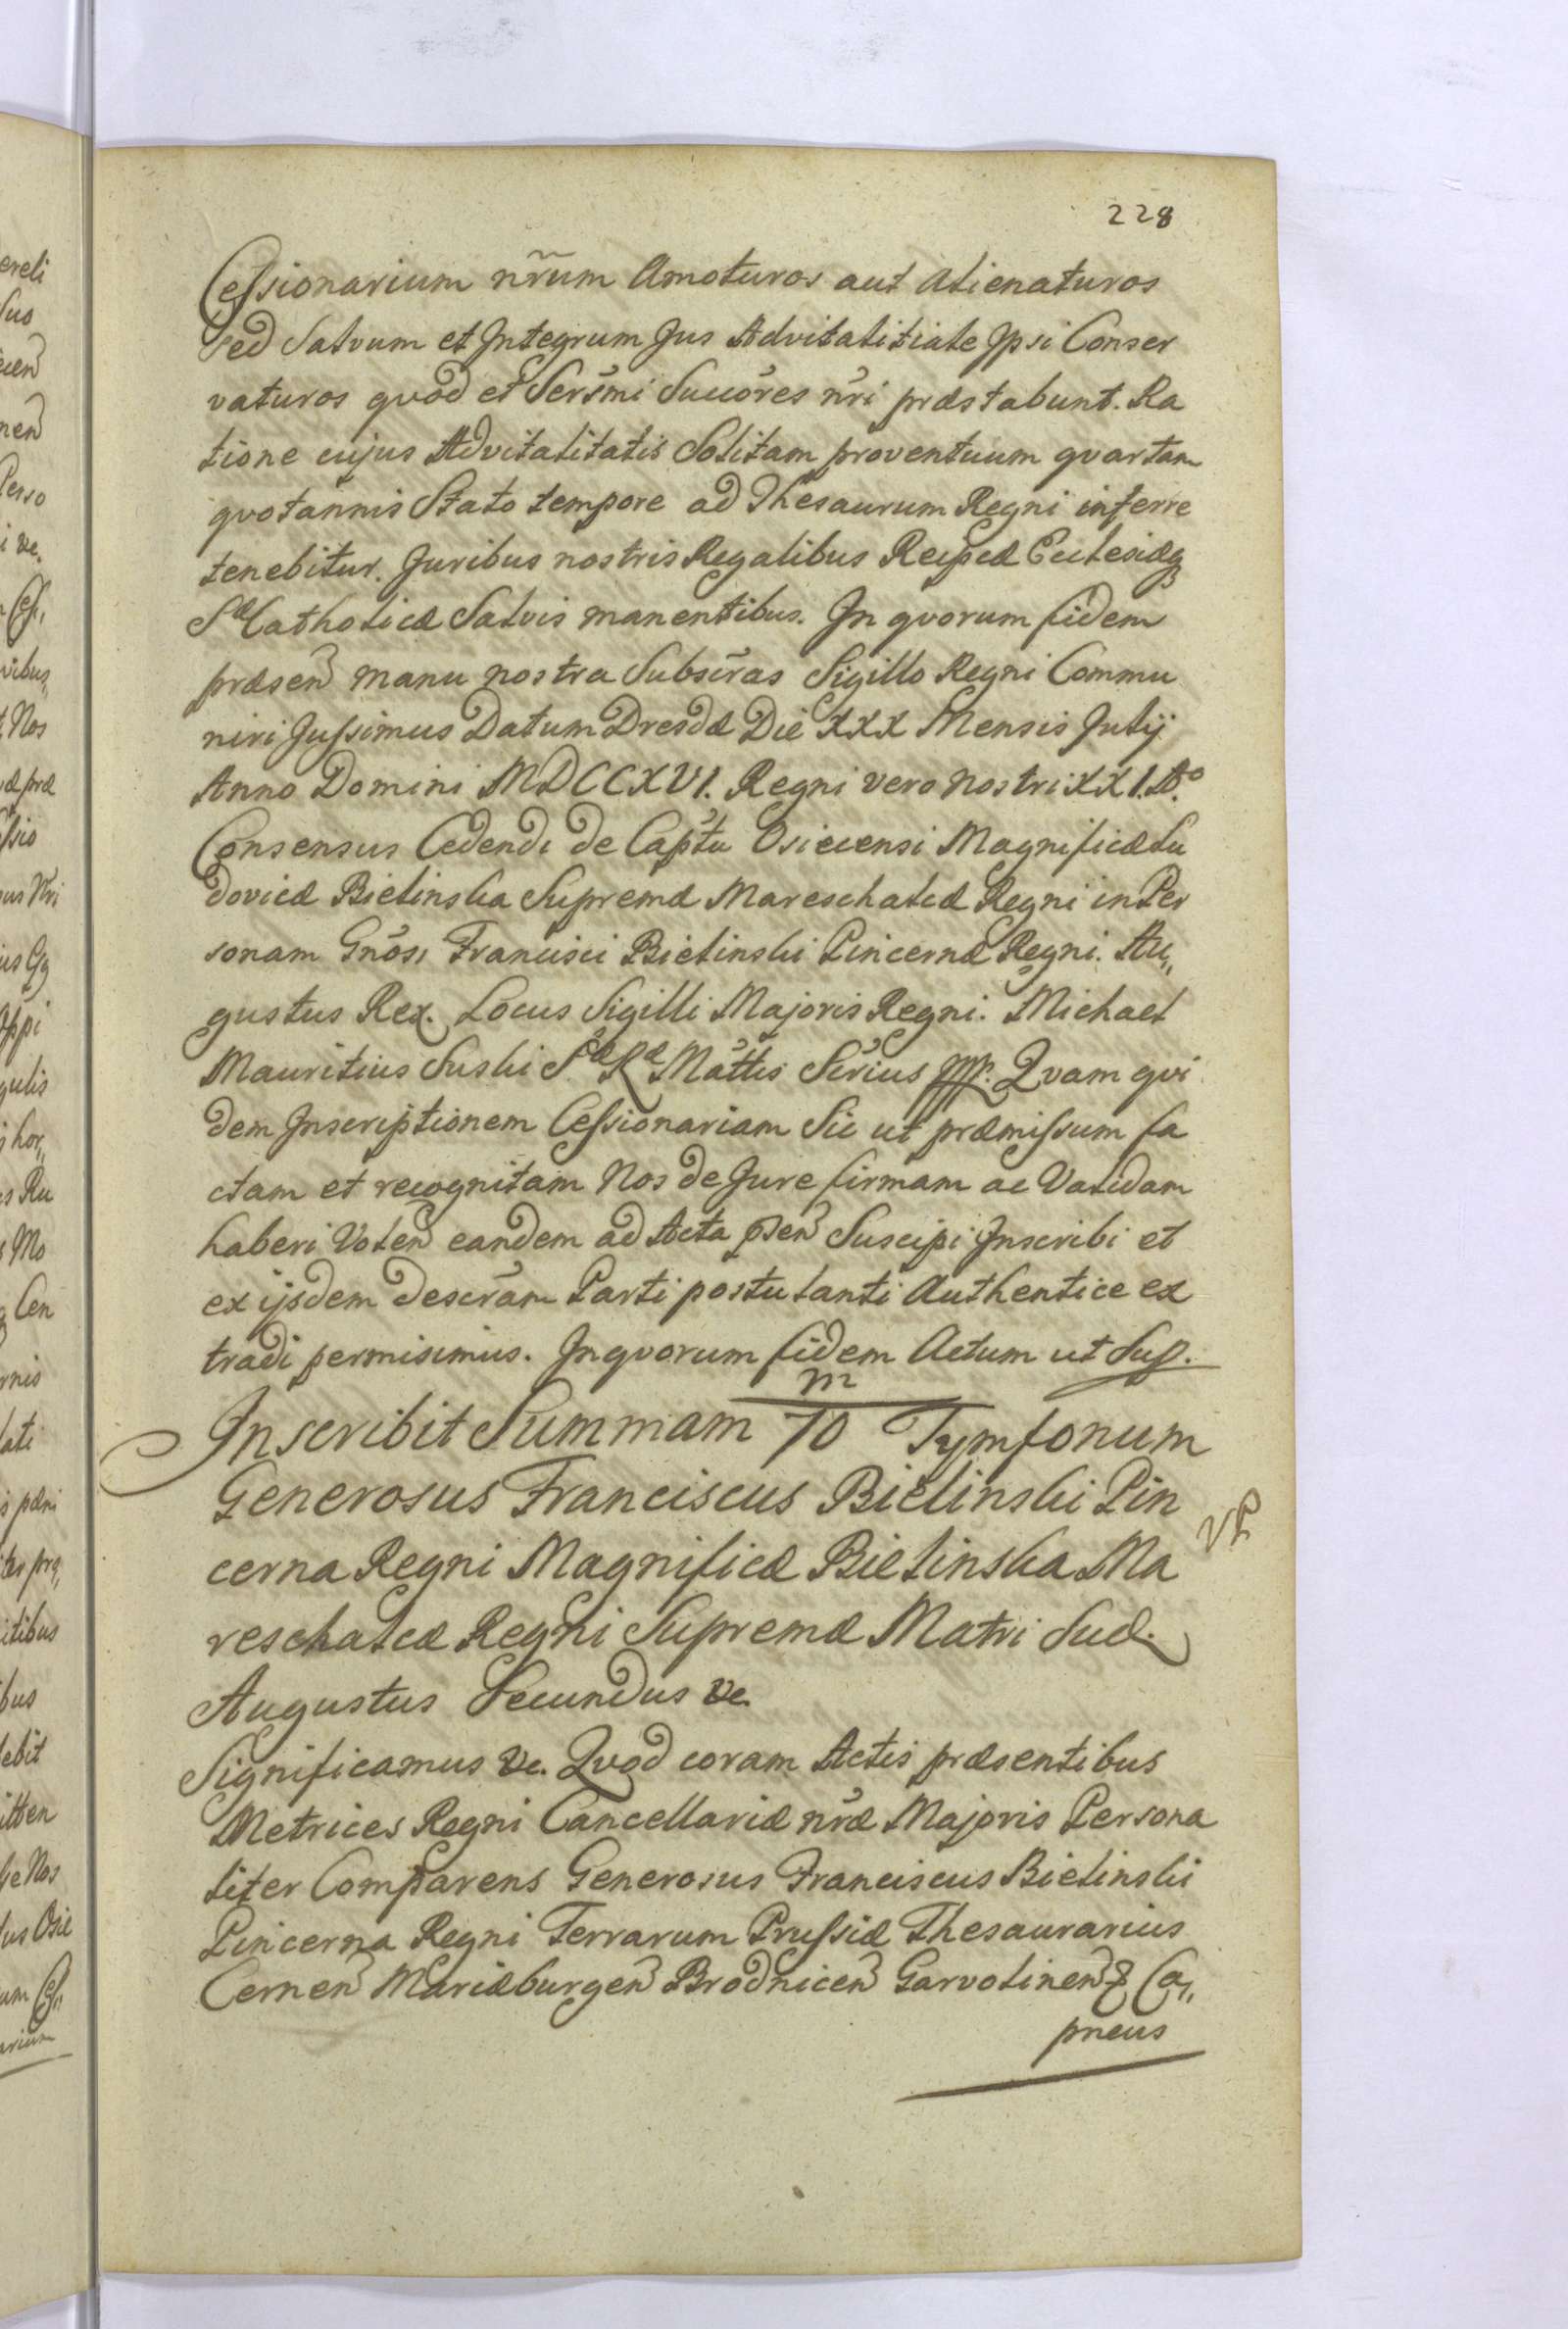 228
Cessionarium nr̃um Amoturos aut Alienaturos
sed Salvum et Integrum Jus Advitalitiale Ipsi Conser
vaturos qvod et Serĩmi Succõres nr̃i præstabunt. Ra
tione cujus Advitalitatis Solitam proventuum qvartam
qvotannis Stato tempore ad Thesaurum Regni inferre
tenebitur. Juribus nostris Regalibus Reipcæ Ecclesiæq
Sæ Catholicæ Salvis manentibus. In qvorum fidem
præsen manu nostra Subscr̃as Sigillo Regni Commu
niri Jussimus Datum Dresdæ Die XXX Mensis Julij
Anno Domini MDCCXVI. Regni vero nostri XXI. A.º
Consensus Cedendi de Captu Osiecensi Magnificæ Lu
dovicæ Bielinska Supremæ Mareschalcæ Regni in Per
sonam Gnõsi Francisci Bielinski Pincernæ Regni. Au„
gustus Rex. Locus Sigilli Majoris Regni. Michael
Mauritius Suski Sæ Ræ Mãttis Scr̃ius mpp. Qvam qvi
dem Inscriptionem Cessionariam Sic ut præmissum fa
ctam et recognitam Nos de Jure firmam ac Validam
haberi Volen eandem ad Acta pñsen Suscipi Inscribi et
ex ijsdem descr̃am Parti postulanti Authentice ex
tradi permisimus. In qvorum fidem Actum ut Sup.
m
Inscribit Summam 70 Tymfonum
Generosus Franciscus Bielinski Pin
cerna Regni Magnificæ Bielinska Ma
reschalcæ Regni Supremæ Matri Suæ.
Augustus Secundus &c.
Significamus &c. Qvod coram Actis præsentibus
Metrices Regni Cancellariæ nr̃æ Majoris Persona
liter Comparens Generosus Franciscus Bielinski
Pincerna Regni Terrarum Prussiæ Thesaurarius
Cernen Mariæburgen Brodnicen Garvolinen & Ca„
pneus